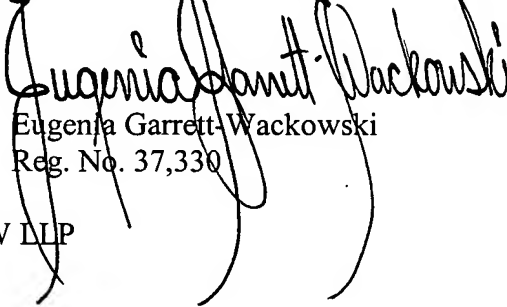 Eugenia Garrett-Wackowski
Eugenia Garrett-Wackowski
Reg. No. 37,330
LLP